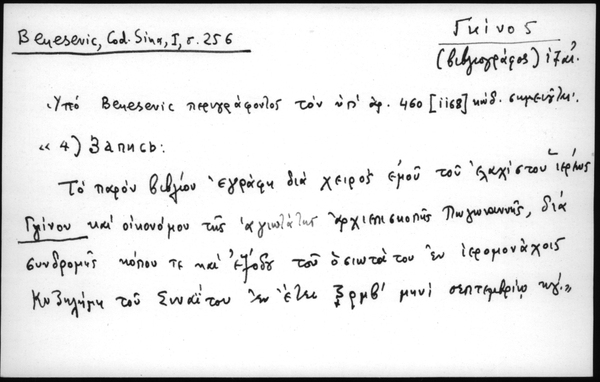 Benesevic, Cod. Sina, I, σ. 256
Γκίνος
(βιβλιογράφος) ιζ' αἰ.
Ὑπό Benesevic περιγράφοντος τόν ὑπ' ἀρ. 460 [1168] κώδ. σημειοῦται:
« 4) Запись:
Τό παρόν βιβλίον ἐγράφη διά χειρός ἐμοῦ τοῦ ἐλαχίστου ἱερέως
Γκίνου καί οἰκονόμου τῆς ἁγιωτάτης ἀρχιεπισκοπῆς Πωγωνιανῆς, διά
συνδρομῆς κόπου τε καί ἐξόδου τοῦ ὁσιωτάτου ἐν ἱερομονάχοις
τοῦ Σιναΐτου ἐν ἔτει ζρμβ' μηνί σεπτεμβρίῳ κγ'.»